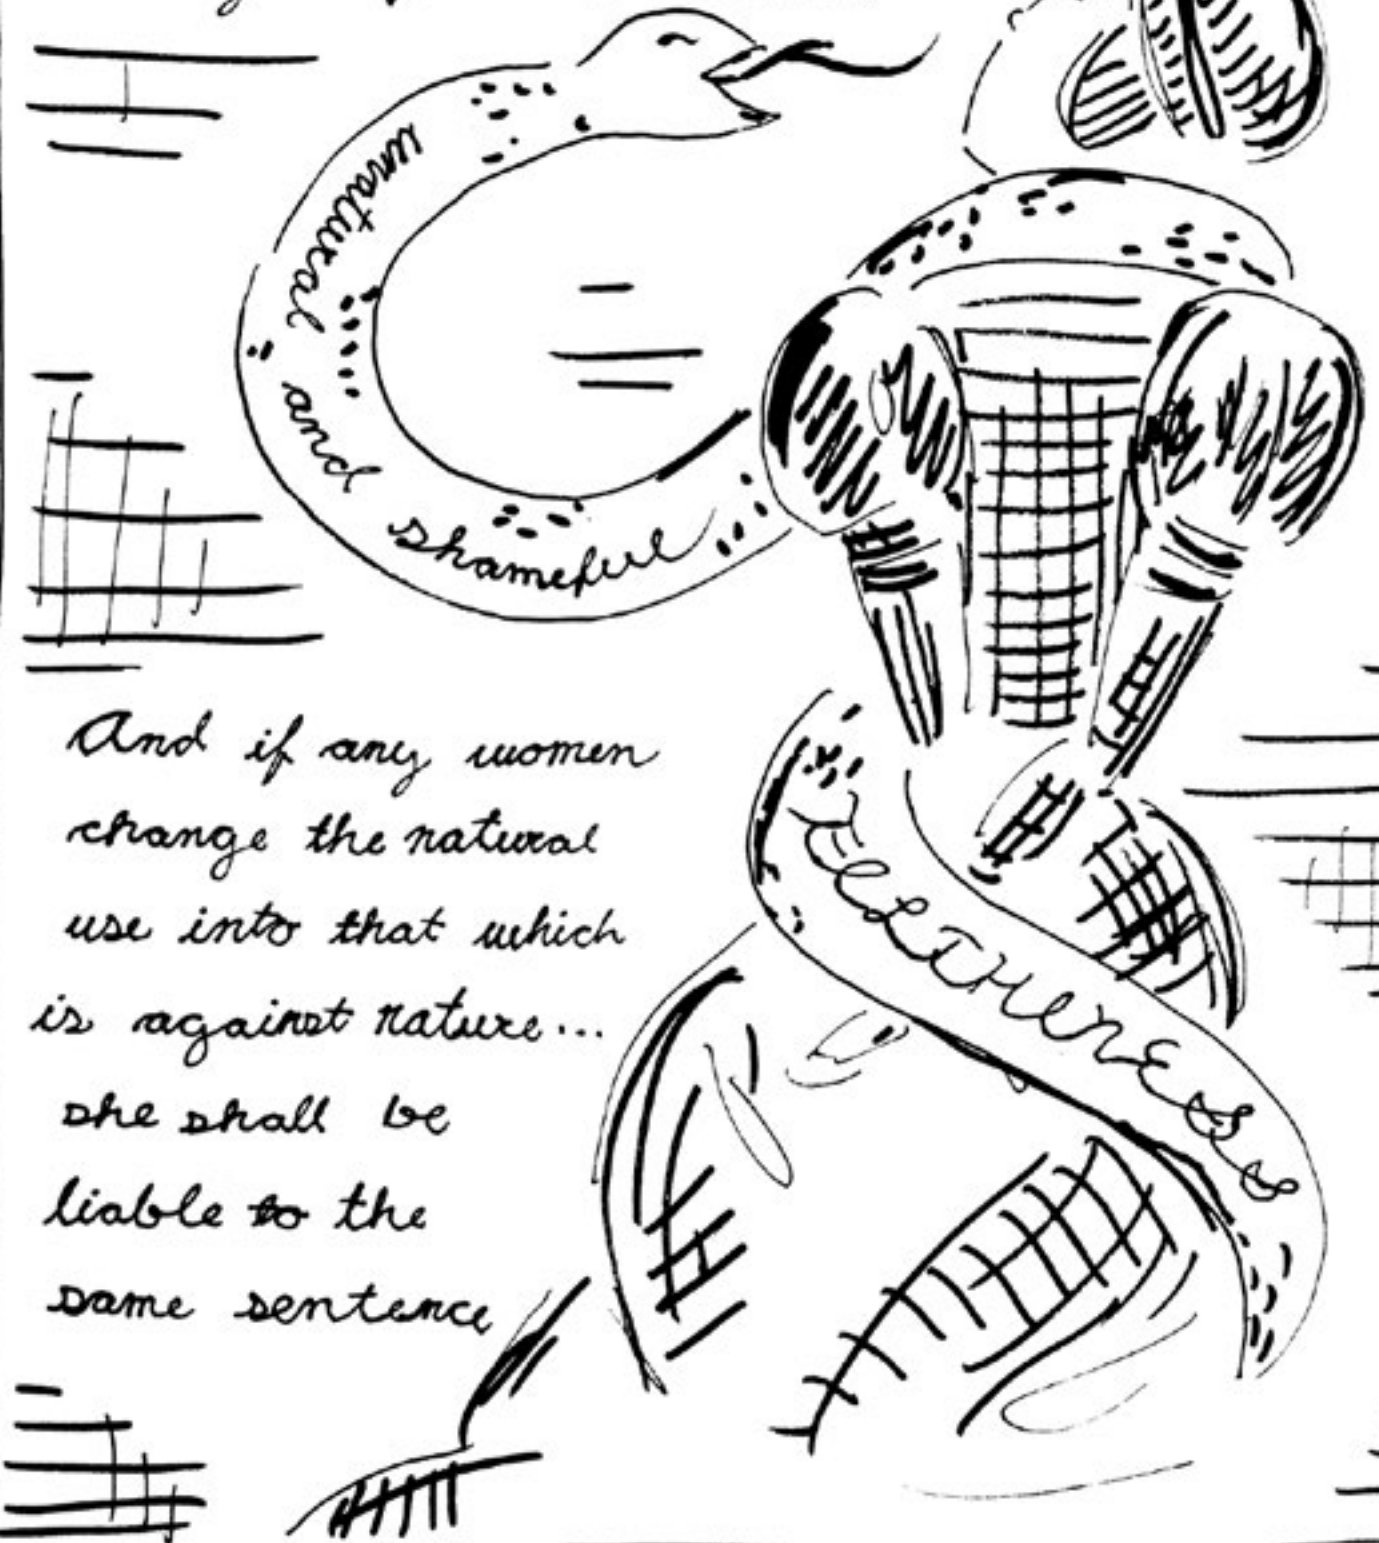 unatural and shameful
And if any women
change the natural
use into that which
is against nature...
she shall be
liable to the
same sentence